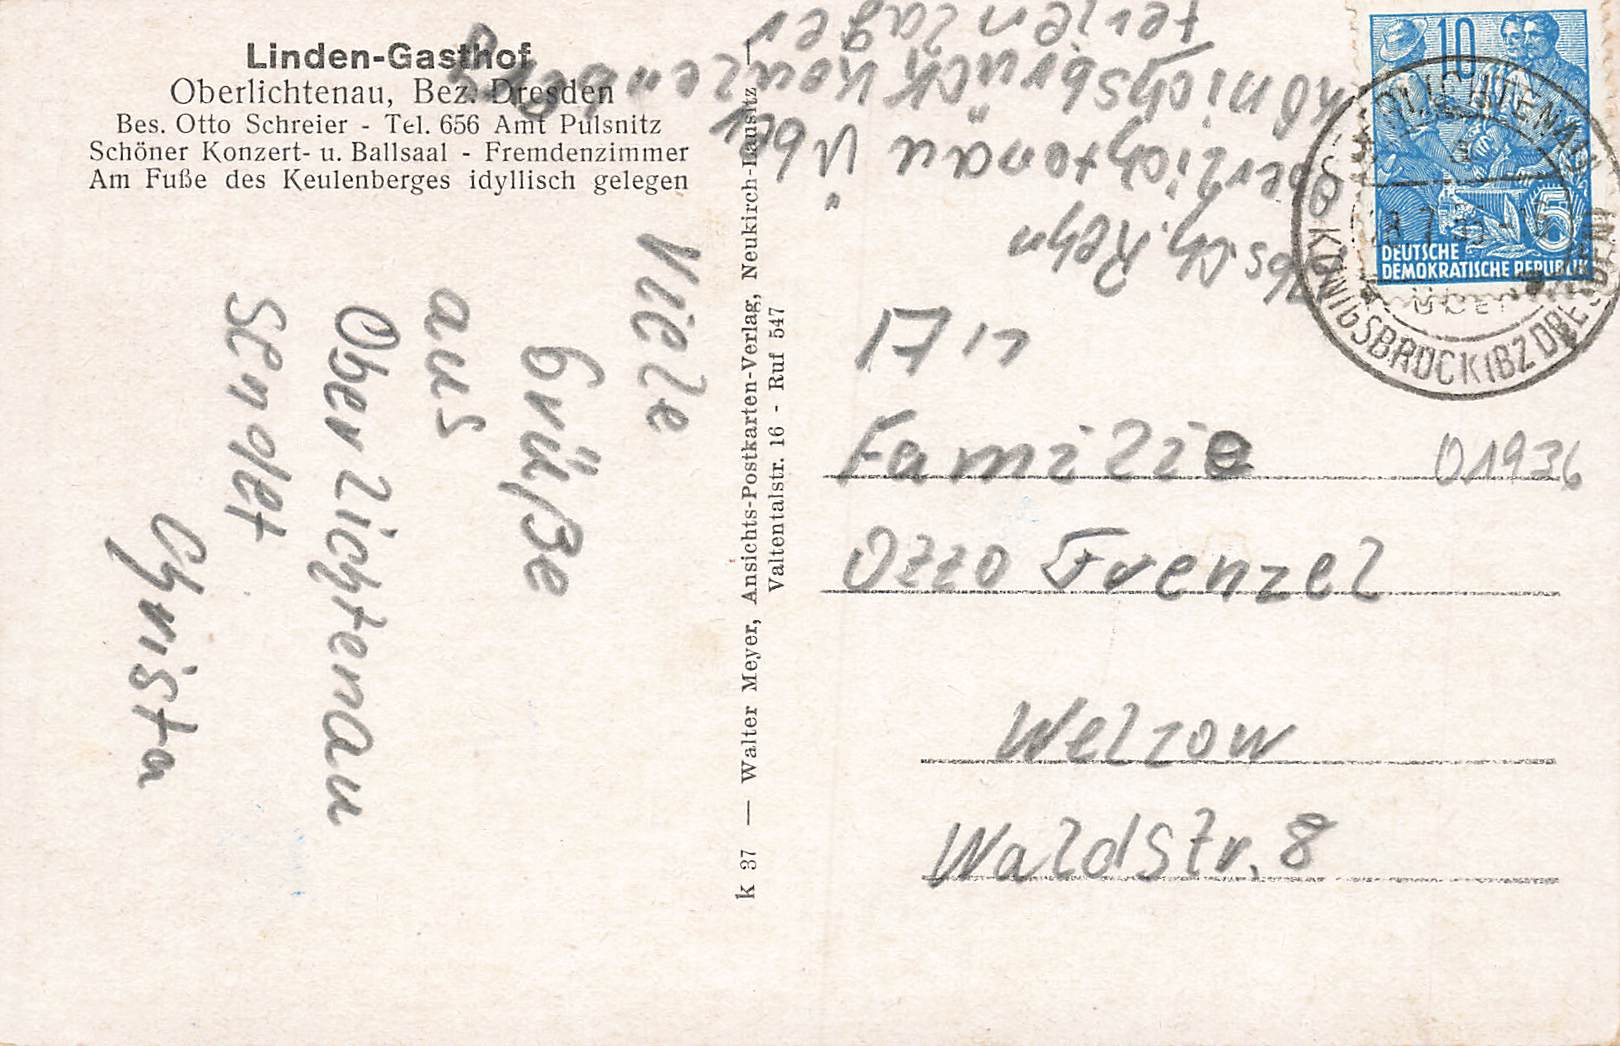 Linden-Gasthof
Oberlichtenau, Bez. Dresden
Bes. Otto Schreier - Tel. 656 Amt Pulsnitz
Schöner Konzert- u. Ballsaal - Fremdenzimmer
Am Fuße des Keulenberges idyllisch gelegen
Viele
Grüße
aus
Oberlichtenau
sendet
Christa
k 37 — Walter Meyer, Ansichts-Postkarten-Verlag, Neukirch-Lausitz —
Valtentalstr. 16 - Ruf 547
Abs. Ch. Rehn
Oberlichtenau über
Königsbrück
Ferienlager
10
5
DEUTSCHE
DEMOKRATISCHE REPUBLIK
OBERLICHTENAU
ÜBER
KÖNIGSBRÜCK (BZ DRESDEN)
An
Familie
01936
Otto Frenzel
Welzow
Waldstr. 8